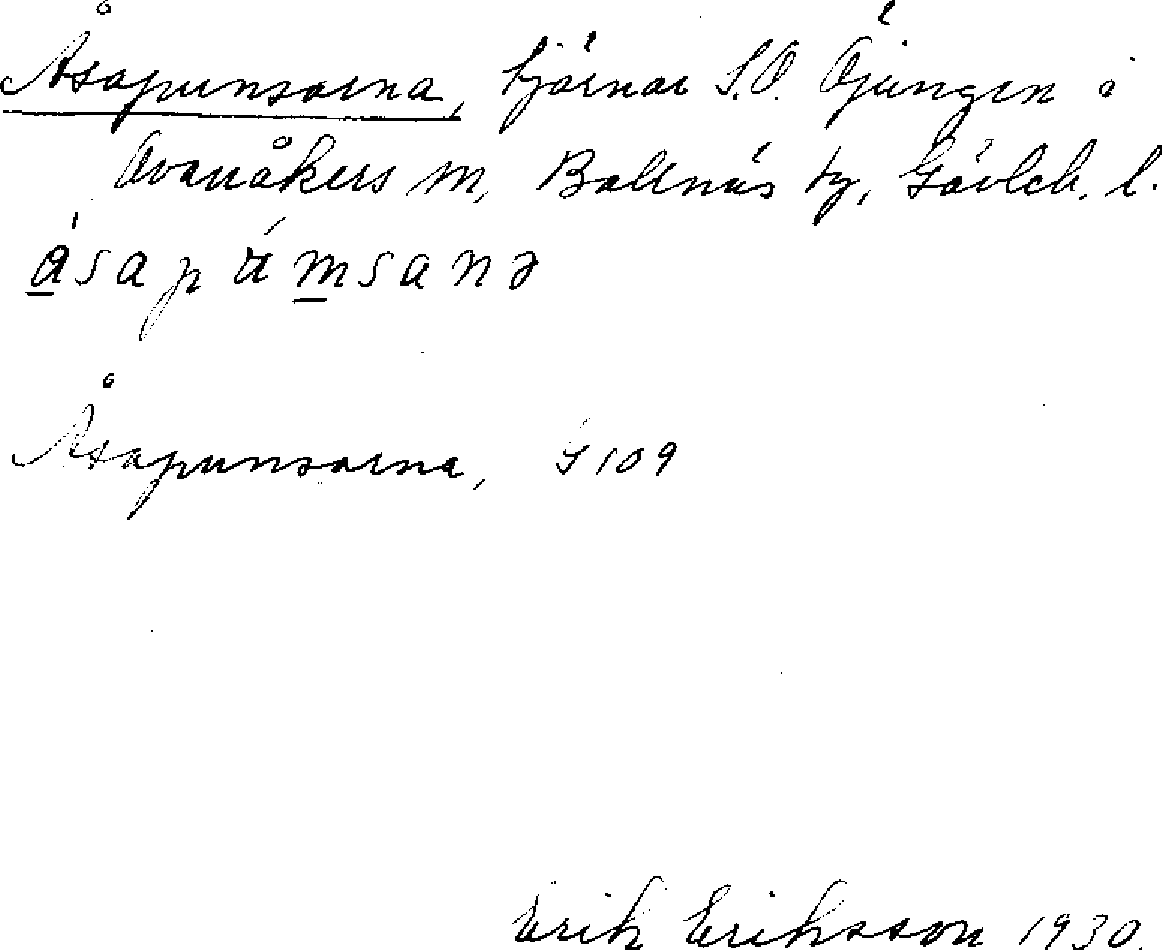 Åsapunsarna, tjärnar S.O. Öjungen i
Ovanåkers sn, Bollnäs tg, Gävleb. l.
åsapúmsanə
Åsapunsarna, S 109
Erik Eriksson 1930.